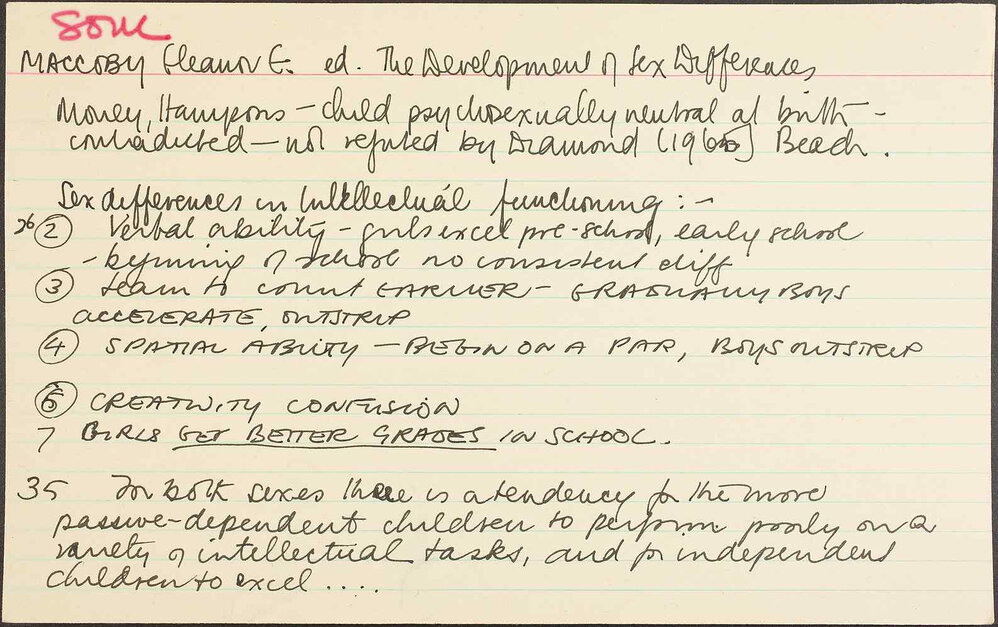 SOUL
MACCOBY Eleanor E. ed. The Development of Sex Differences
Money, Hampsons – child psychosexually neutral at birth –
contradicted – not refuted by Diamond (1965) Beach.
Sex differences in Intellectual functioning :–
26 (2) Verbal ability – girls excel pre-school, early school
– beginning of school no consistent diff
(3) Learn to count EARLIER – GRADUALLY BOYS
ACCELERATE, OUTSTRIP
(4) SPATIAL ABILITY – BEGIN ON A PAR, BOYS OUTSTRIP
(6) CREATIVITY CONFUSION
7 GIRLS GET BETTER GRADES IN SCHOOL.
35 In both sexes there is a tendency for the more
passive-dependent children to perform poorly on a
variety of intellectual tasks, and for independent
children to excel ....